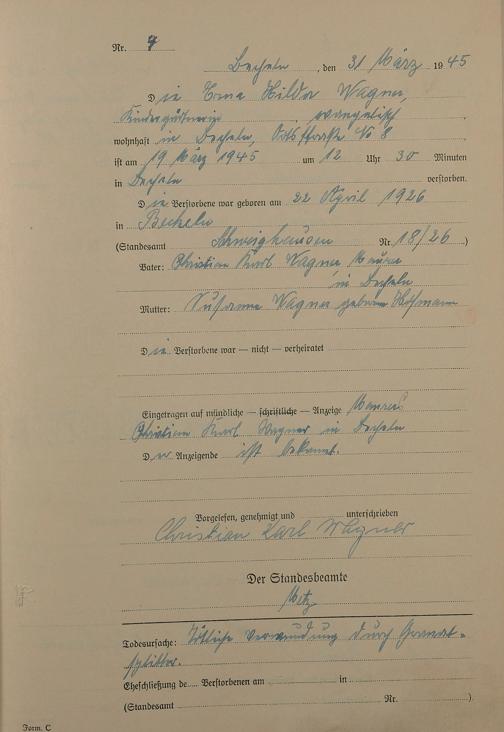 Nr. 4
Becheln, den 31 März 1945
Die Erna Hilda Wagner,
Kindergärtnerin, evangelisch
wohnhaft in Becheln, Ortsstraße No 8
ist am 19 März 1945 um 12 Uhr 30 Minuten
in Becheln verstorben.
Die Verstorbene war geboren am 22 April 1926
in Becheln
(Standesamt Schweighausen Nr. 18/26)
Vater: Christian Karl Wagner, Maurer
in Becheln
Mutter: Susanna Wagner geborene Hofmann
Die Verstorbene war — nicht — verheiratet
Eingetragen auf mündliche — schriftliche — Anzeige Maurers
Christian Karl Wagner in Becheln
Der Anzeigende ist bekannt.
Vorgelesen, genehmigt und unterschrieben
Christian Karl Wagner
Der Standesbeamte
Todesursache: Tötliche Verwundung durch Granat-
splitter.
Eheschließung de Verstorbenen am in
(Standesamt Nr. )
Form. C